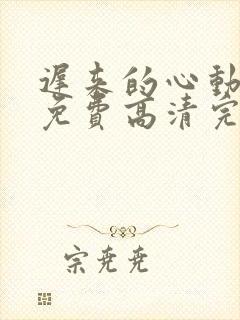 遲来的心動
免費高清完
宗尭尭